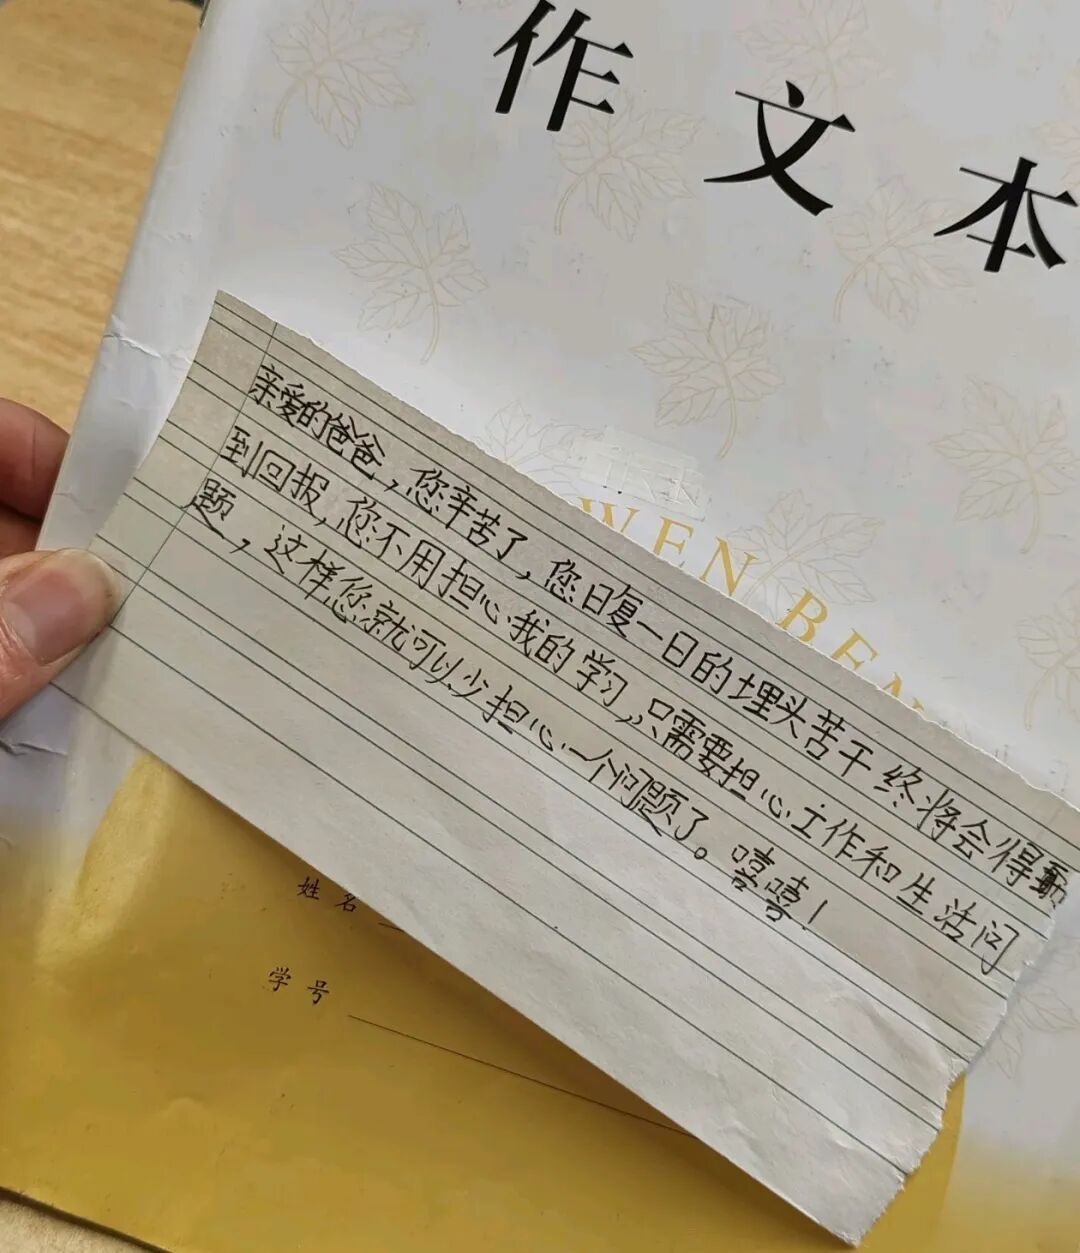 作文本
ZUO WEN BEN
亲爱的爸爸，您辛苦了，您日复一日的埋头苦干终将会得
到回报，您不用担心我的学习，只需要担心工作和生活问
题，这样您就可以少担心一个问题了。嘻嘻！
姓名
学号